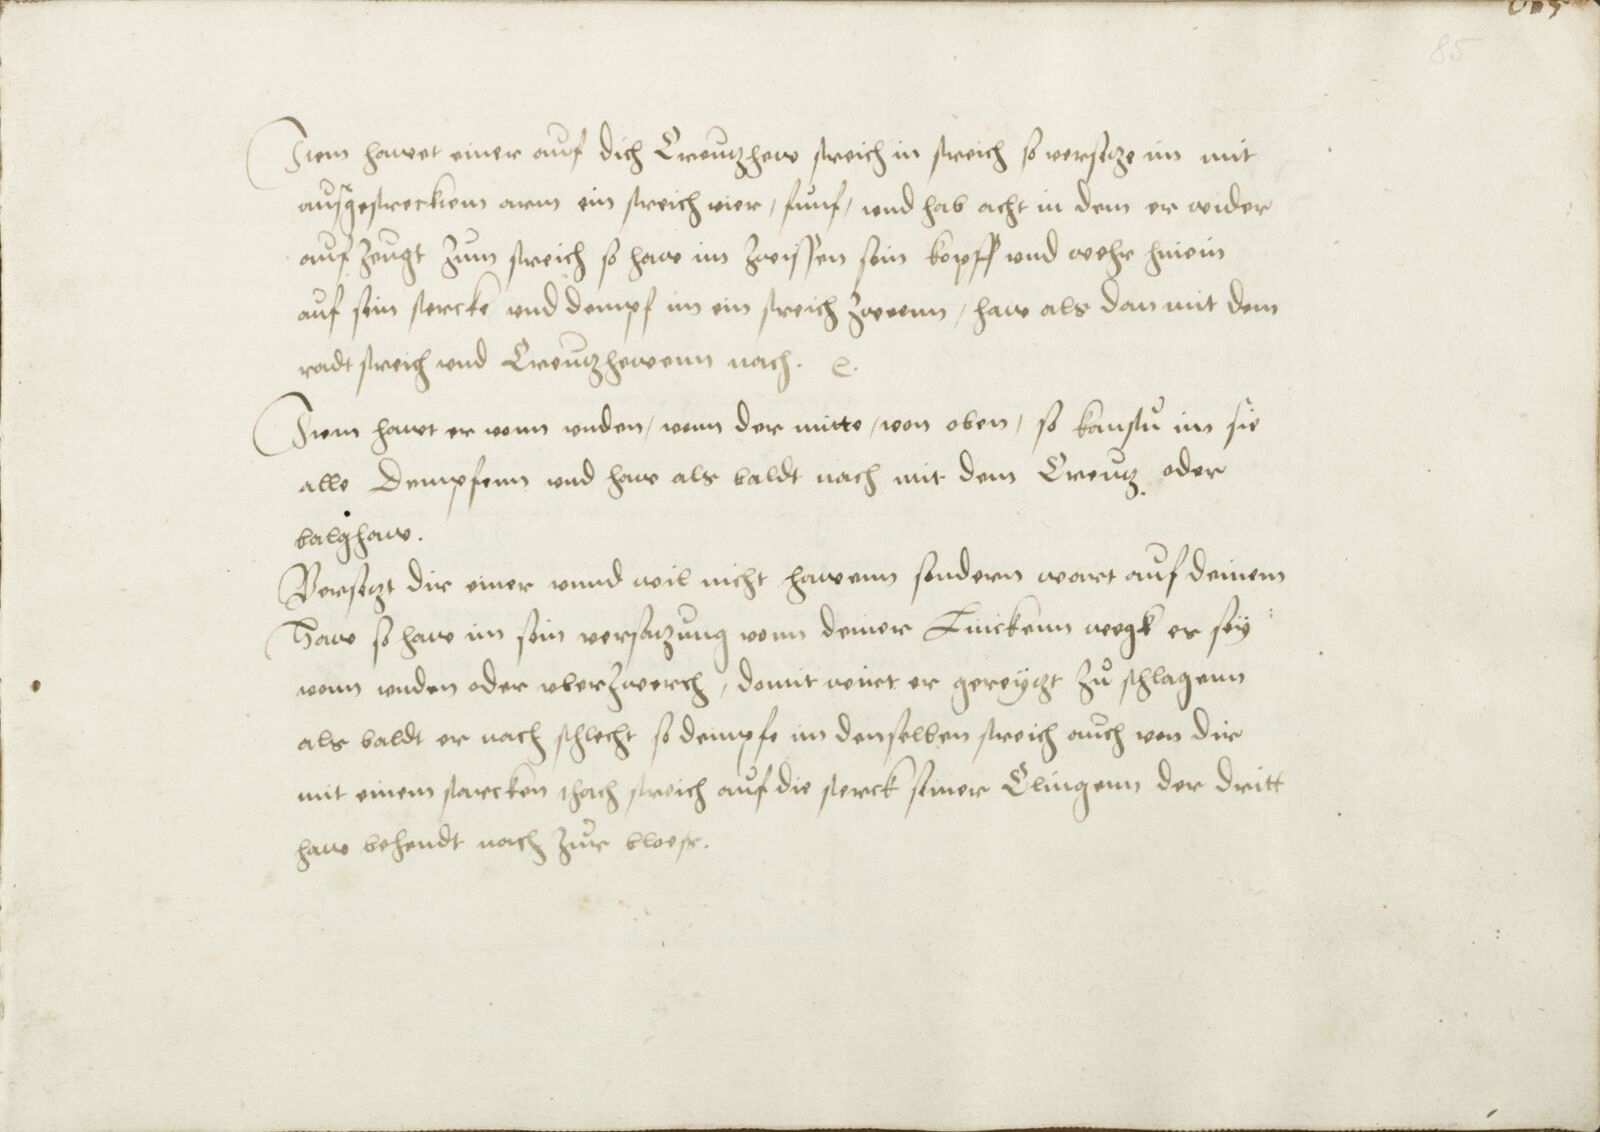 85
Item hawet einer auf dich Creutzhew streich in streich so versetze im mit
ausgestrecktem arm ein streich vier / funf / und hab acht in dem er wider
auf zeugt zum streich so haw im zwissen sein kopff und wehr hinein
auf sein stercke und dempf im ein streich zweenn / haw als dan mit dem
radt streich und Creutzhewenn nach. e.
Item hawt er vonn unden / vonn der mitte / von oben / so kanstu im sie
alle dempfenn und haw als baldt nach mit dem Creutz oder
balghaw.
Versetzt dir einer unnd wil nicht hawenn sondern wart auf deinem
Haw so haw im sein versatzung vonn deiner Linckenn wegk es sey
vonn unden oder uberzwerch / domit wirt er gereytzt zů schlagenn
als baldt er nach schlecht so dempfe im denselben streich auch von dir
mit einem starcken thach streich auf die sterck seiner Clingenn der dritt
haw behendt nach zur bloess.